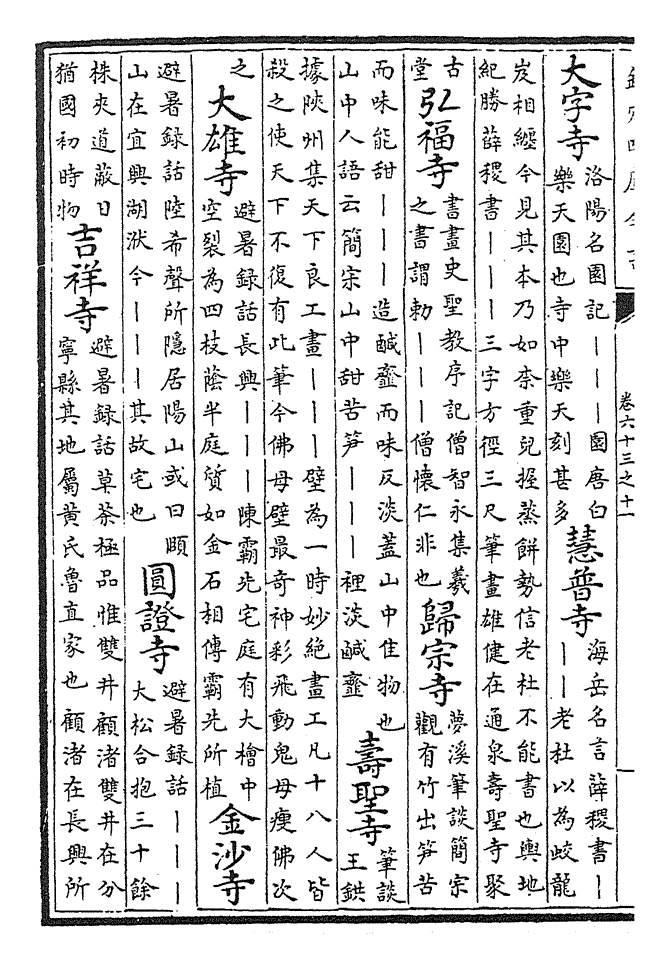 卷六十三之十一
大字寺
洛陽名園記｜｜｜園唐白
樂天園也寺中樂天刻甚多
慧普寺
海岳名言薛稷書｜
｜｜老杜以為蛟龍
岌相纏今見其本乃如柰重兒握蒸餅勢信老杜不能書也輿地
紀勝薛稷書｜｜｜三字方徑三尺筆畫雄健在通泉壽聖寺聚
古
堂
弘福寺
書畫史聖教序記僧智永集羲
之書謂勅｜｜｜僧懷仁非也
歸宗寺
夢溪筆談簡宗
觀有竹出笋苦
而味能甜｜｜｜造鹹虀而味反淡蓋山中佳物也
山中人語云簡宗山中甜苦笋｜｜｜裡淡鹹虀
壽聖寺
筆談
王鉷
據陜州集天下良工畫｜｜｜壁為一時妙絕畫工凡十八人皆
殺之使天下不復有此筆今佛母壁最奇神彩飛動鬼母瘦佛次
之
大雄寺
避暑録話長興｜｜｜陳霸先宅庭有大檜中
空裂為四枝蔭半庭質如金石相傳霸先所植
金沙寺
避暑録話陸希聲所隱居陽山或曰頤
山在宜興湖㳇今｜｜｜其故宅也
圓證寺
避暑録話｜｜｜
大松合抱三十餘
株夾道蔽日
猶國初時物
吉祥寺
避暑録話草茶極品惟雙井顧渚雙井在分
寧縣其地屬黃氏魯直家也顧渚在長興所